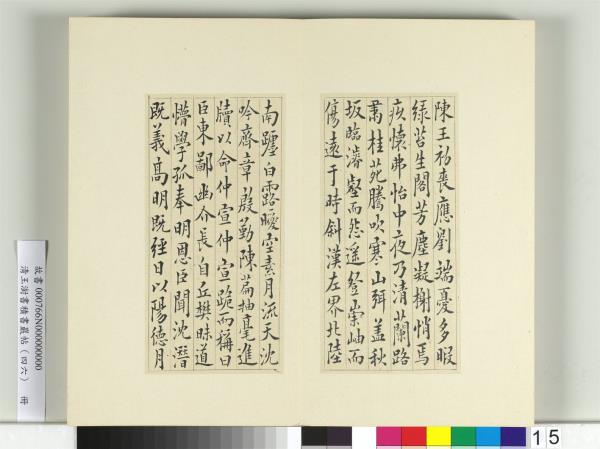 陳王初喪應劉端憂多暇
綠苔生閣芳塵凝榭悄焉
疚懷弗怡中夜乃清蘭路
肅桂苑騰吹寒山弭蓋秋
坂臨濬壑而怨遙登崇岫而
傷遠于時斜漢左界北陸
南躔白露曖空素月流天沈
吟齊章殷勤陳篇抽毫進
牘以命仲宣仲宣跪而稱曰
臣東鄙幽介長自丘樊昧道
懵學孤奉明恩臣聞沈潛
既義高明既經日以陽德月
故書 000766N000000000
清王澍書積書巖帖（四六） 冊
15